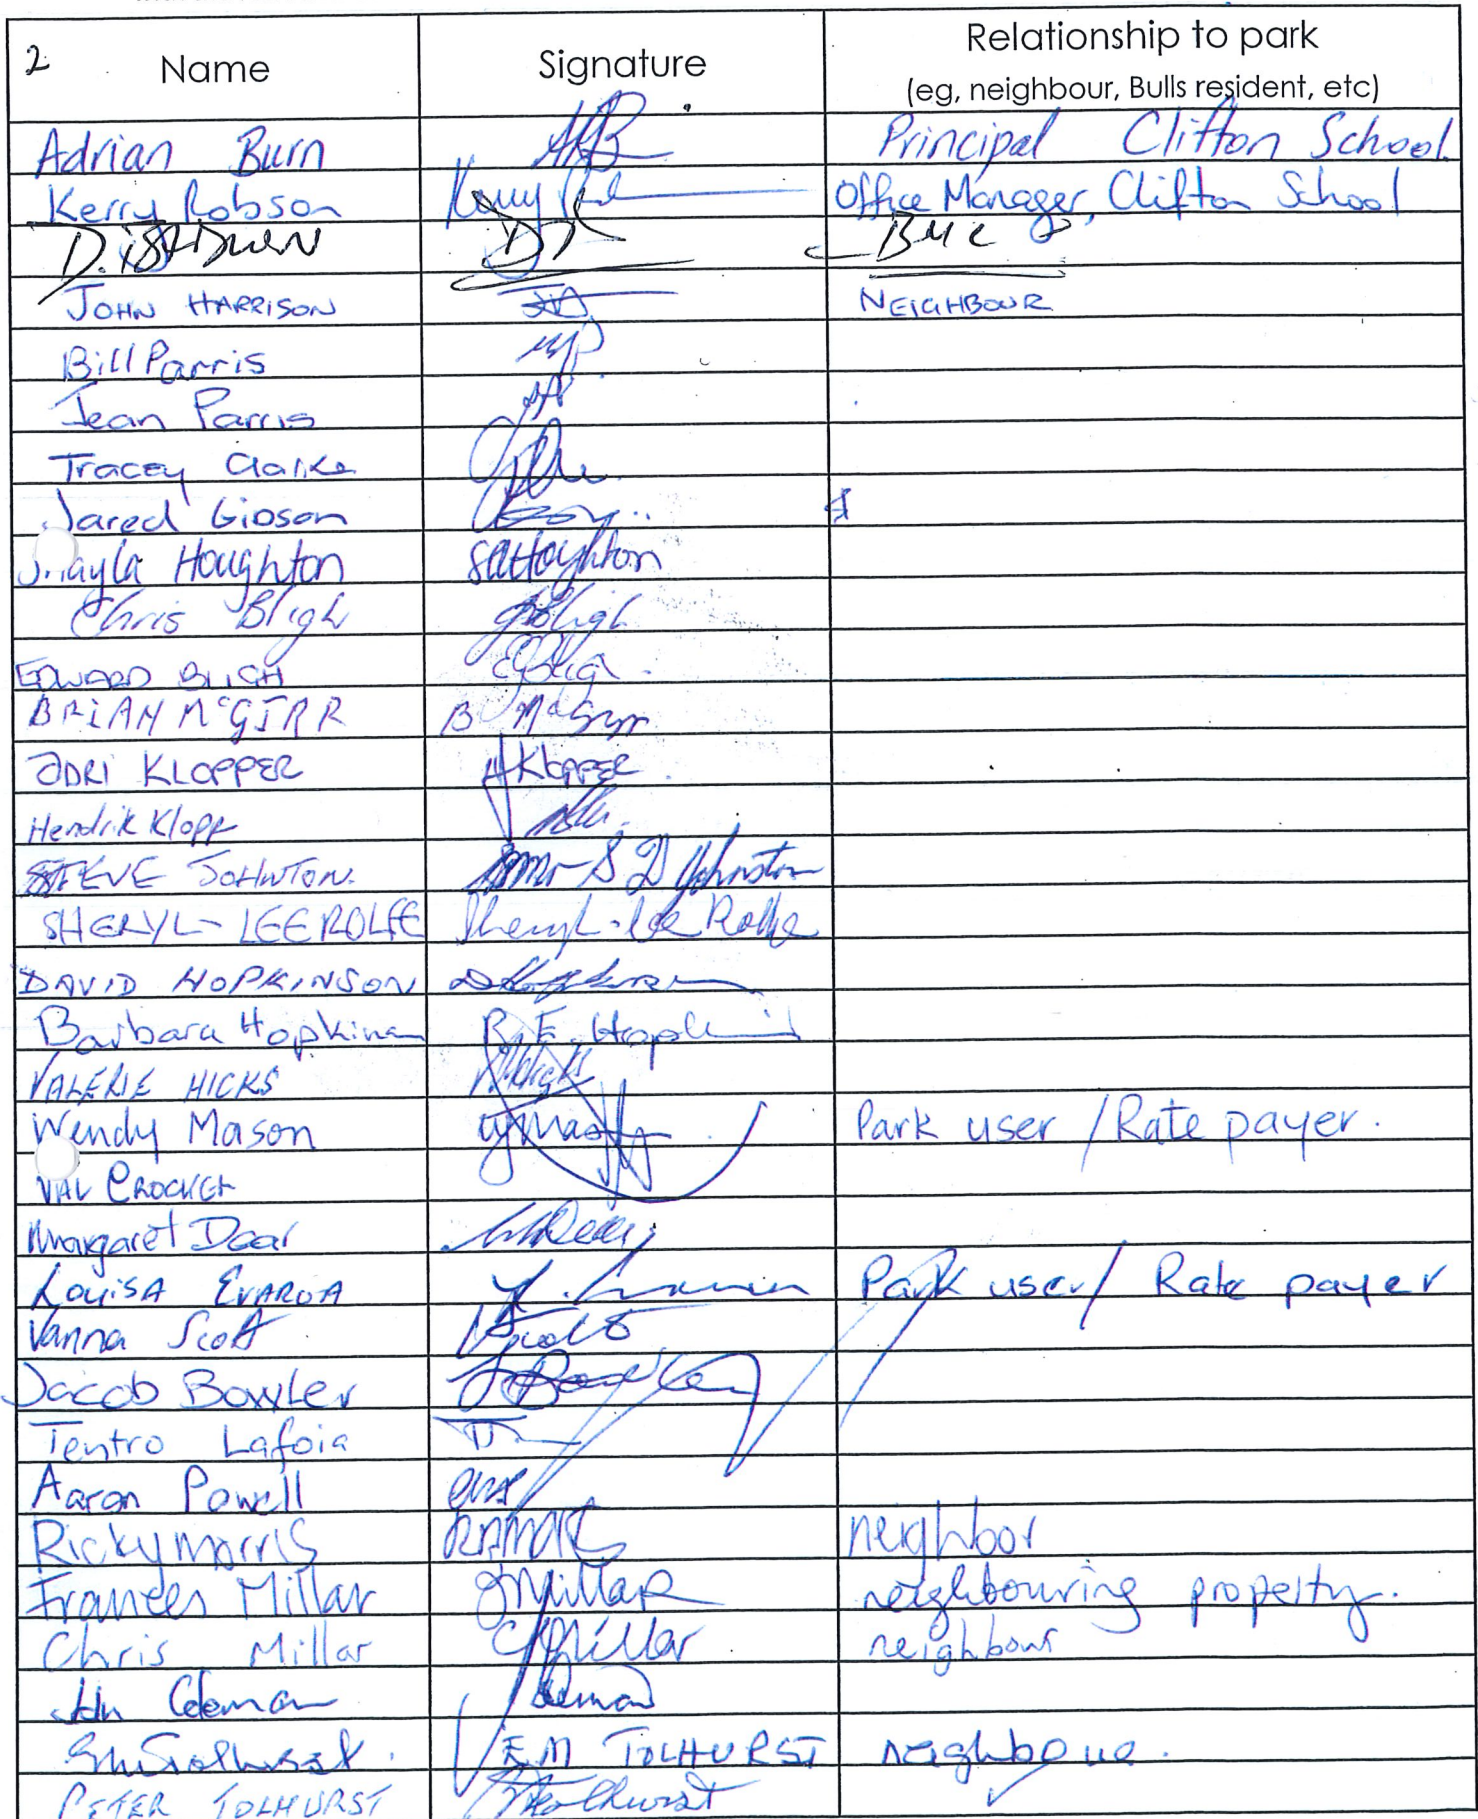 2 Name Signature Relationship to park
(eg, neighbour, Bulls resident, etc)
Adrian Burn Principal Clifton School.
Kerry Robson Office Manager, Clifton School
JOHN HARRISON NEIGHBOUR
Bill Parris
Jean Parris
Tracey Clarke
Jared Gibson
Houghton SAHoughton
Chris Bligh
EDWARD BLIGH
BRIAN McGIRR B
ADRI KLOPPER AKLOPPER
Hendrik Klopp
STEVE JOHNTON. S D Johnston
SHERYL-LEE ROLFE Sheryl-Lee Rolfe
DAVID HOPKINSON
Barbara Hopkins B.E. Hopkins
VALERIE HICKS
Wendy Mason Park user / Rate payer.
VAL CROCKET
Margaret Daar
LOUISA Park user / Rate payer
Vanna Scott
Jacob Bowler
Tentro Lafoia
Aaron Powell
Ricky Morris neighbor
Frances Millar Millar neighbouring property.
Chris Millar C Millar neighbour
Coleman
E M TOLHURST neighboue.
PETER TOLHURST